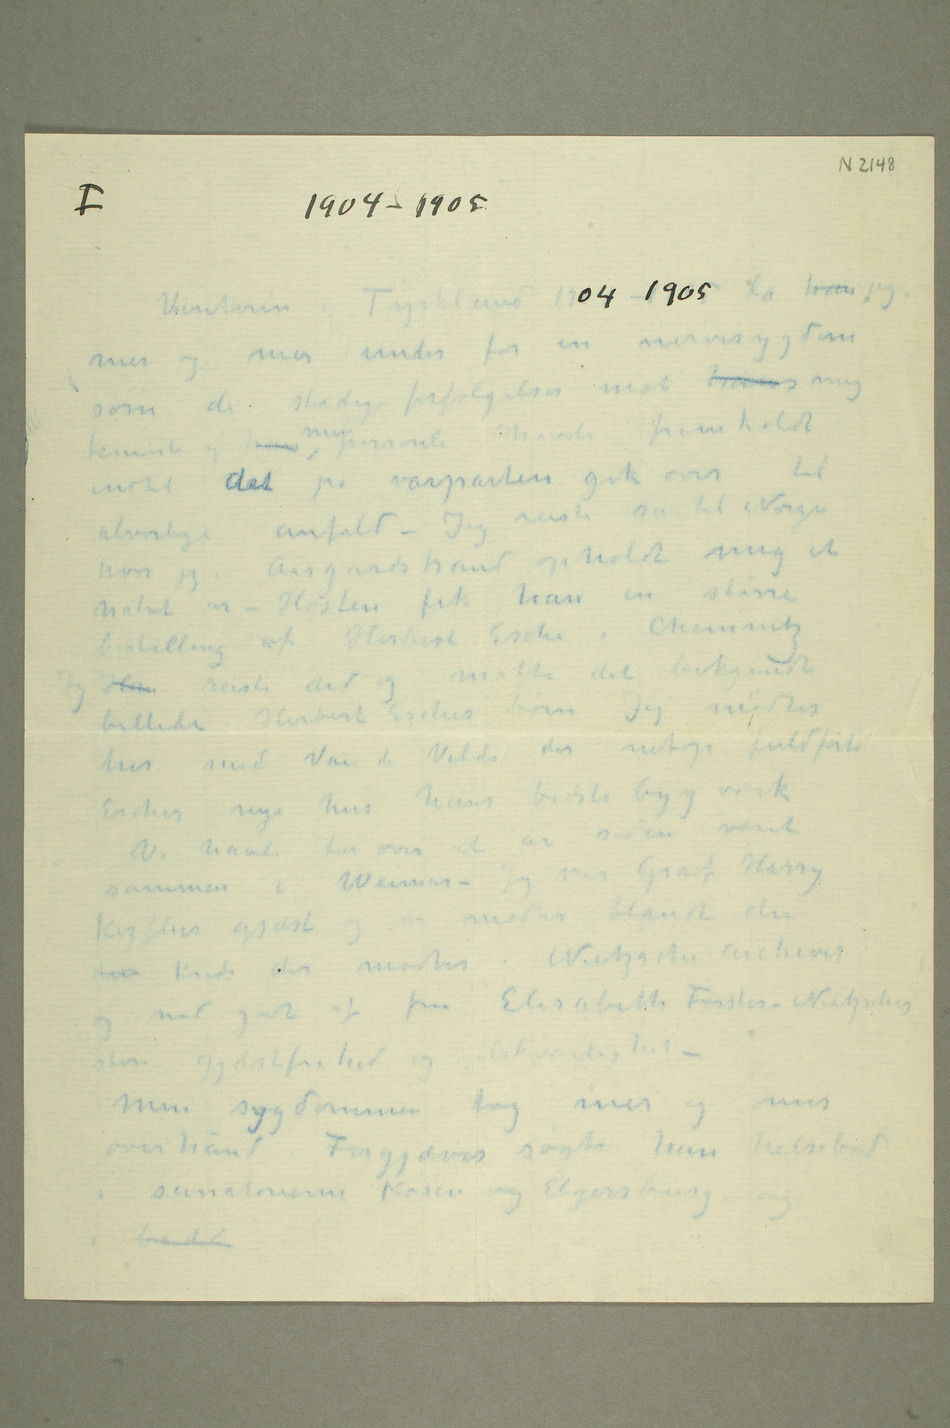 N 2148
I 1904–1905
Vinteren Tyskland 1904 – 1905 La han jeg
mer og mer under for en nervesygdom
som de stadige forfølgelser mot hans mig
kunst og hans min person havde fremholdt
indtil det på vorparten gik over til
alvorlige anfald – Jeg reiste så til Norge
hvor jeg i Aasgardstrand opholdt mig et
halvt år – Høsten fik han en større
bestilling af Herbert Esche i Chemnitz
Jeg Han reiste did og malte det bekjendte
billede Herbert Esches børn Jeg mødtes
her med Van de Velde der netop fuldførte
Esches nye hus hans bedste bygværk
Vi havde for over et år siden været
sammen i Weimar – Jeg var Graf Harry
Kesslers gjæst og vi mødtes blandt den
kreds der mødtes i Nietzsche archivet
og nød godt af fru Elisabeth Førster – Nietzsches
store gjæstfrihed og elskværdighet –
Men sygdommen tog mer og mer
overhånd Forgjæves søgte han helsebod
i sanatorierne Kösen og Elgersburg og
i